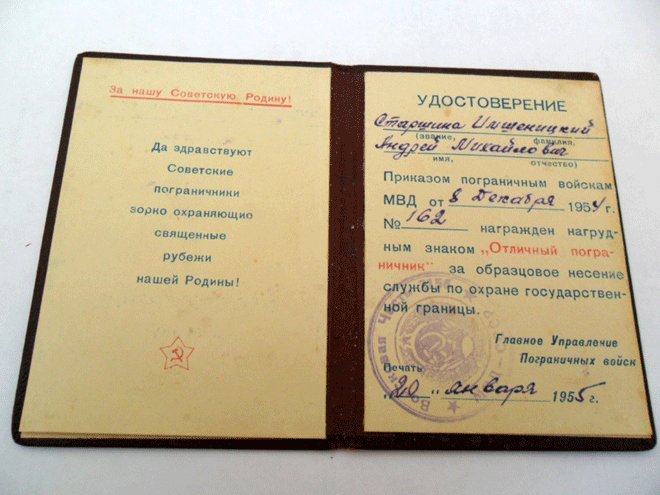 За нашу Советскую Родину!
Да здравствуют
Советские
пограничники
зорко охраняющие
священные
рубежи
нашей Родины!
УДОСТОВЕРЕНИЕ
Старшина
(звание, фамилия,
Андрей Михайлович
имя, отчество)
Приказом пограничным войскам
МВД от 8 Декабря 1954 г.
№ 162 награжден нагруд-
ным знаком „Отличный погра-
ничник" за образцовое несение
службы по охране государствен-
ной границы.
Главное Управление
Пограничных войск
Печать
„20" января 1955 г.
Войсковая Часть